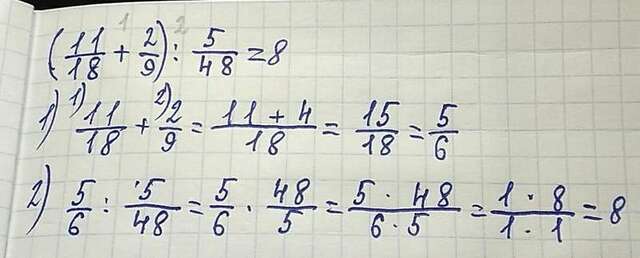 (11/18 + 2/9) : 5/48 = 8
1 2
1) 1) 11/18 + 2) 2/9 = (11 + 4)/18 = 15/18 = 5/6
2) 5/6 : 5/48 = 5/6 · 48/5 = (5 · 48)/(6 · 5) = (1 · 8)/(1 · 1) = 8